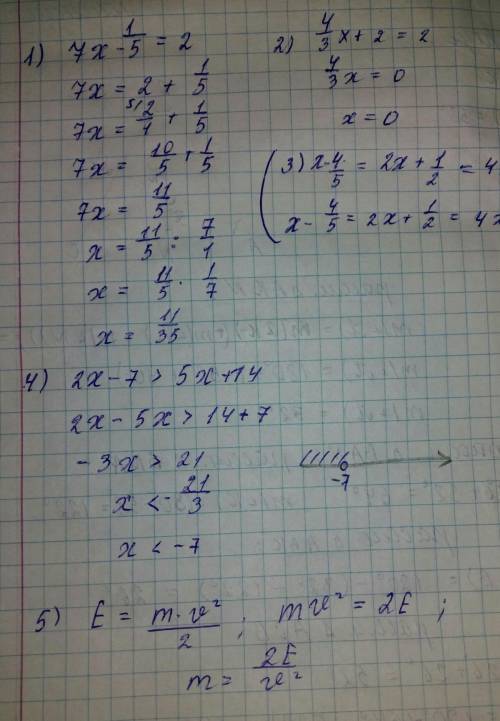 1) 7x - 1/5 = 2
7x = 2 + 1/5
7x = 5/ 2/1 + 1/5
7x = 10/5 + 1/5
7x = 11/5
x = 11/5 : 7/1
x = 11/5 · 1/7
x = 11/35
2) 4/3 x + 2 = 2
4/3 x = 0
x = 0
3) x - 4/5 = 2x + 1/2 = 4
x - 4/5 = 2x + 1/2 = 4
4) 2x - 7 > 5x + 14
2x - 5x > 14 + 7
-3x > 21
x < - 21/3
x < -7
-7
5) E = m·v²/2 ; mv² = 2E ;
m = 2E/v²